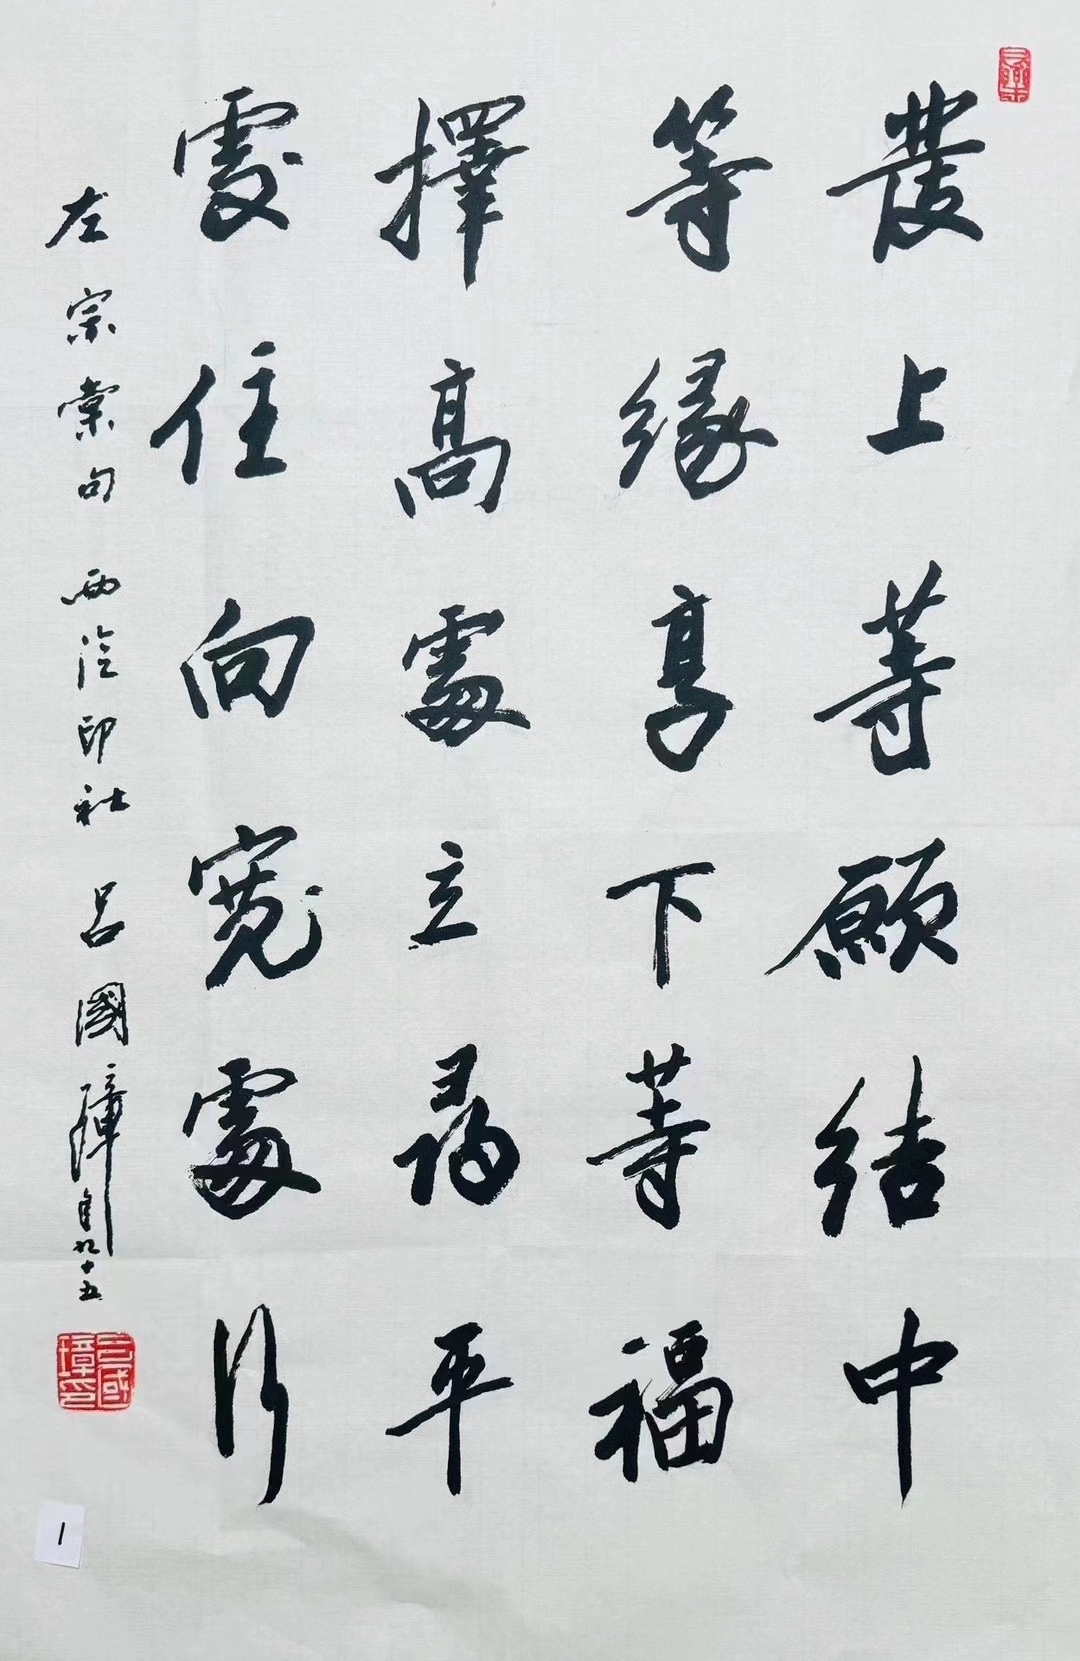 發上等願結中
等緣享下等福
擇高處立尋平
處住向寬處行
左宗棠句 西泠印社 呂國璋年九十五
呂國璋印
1